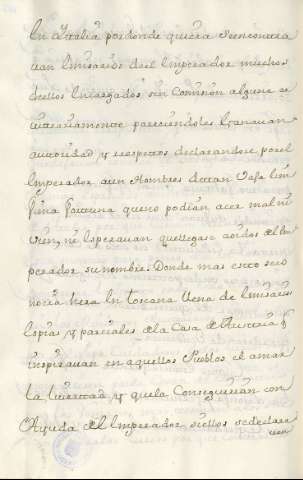 En Ytalia por donde quiera se encontra
uan Emisarios del Emperador muchos
dellos Encargados sin Comision alguna
pareciendoles Ganauan
autoridad y respectos declarandose por el
Emperador aun Hombres de tan Vaja
fima fortuna que no podian acer mal ni
vien, ni Esperauan que llegase a oidos del Em
perador su nombre. Donde mas esto se co
nocia hera En toscana llena de Emisarios
Espias y parciales de la Casa de Austria q
inspirauan en aquellos Pueblos el amor
la livertad y que la Conseguirian con
Ayuda del Emperador si ellos se declara